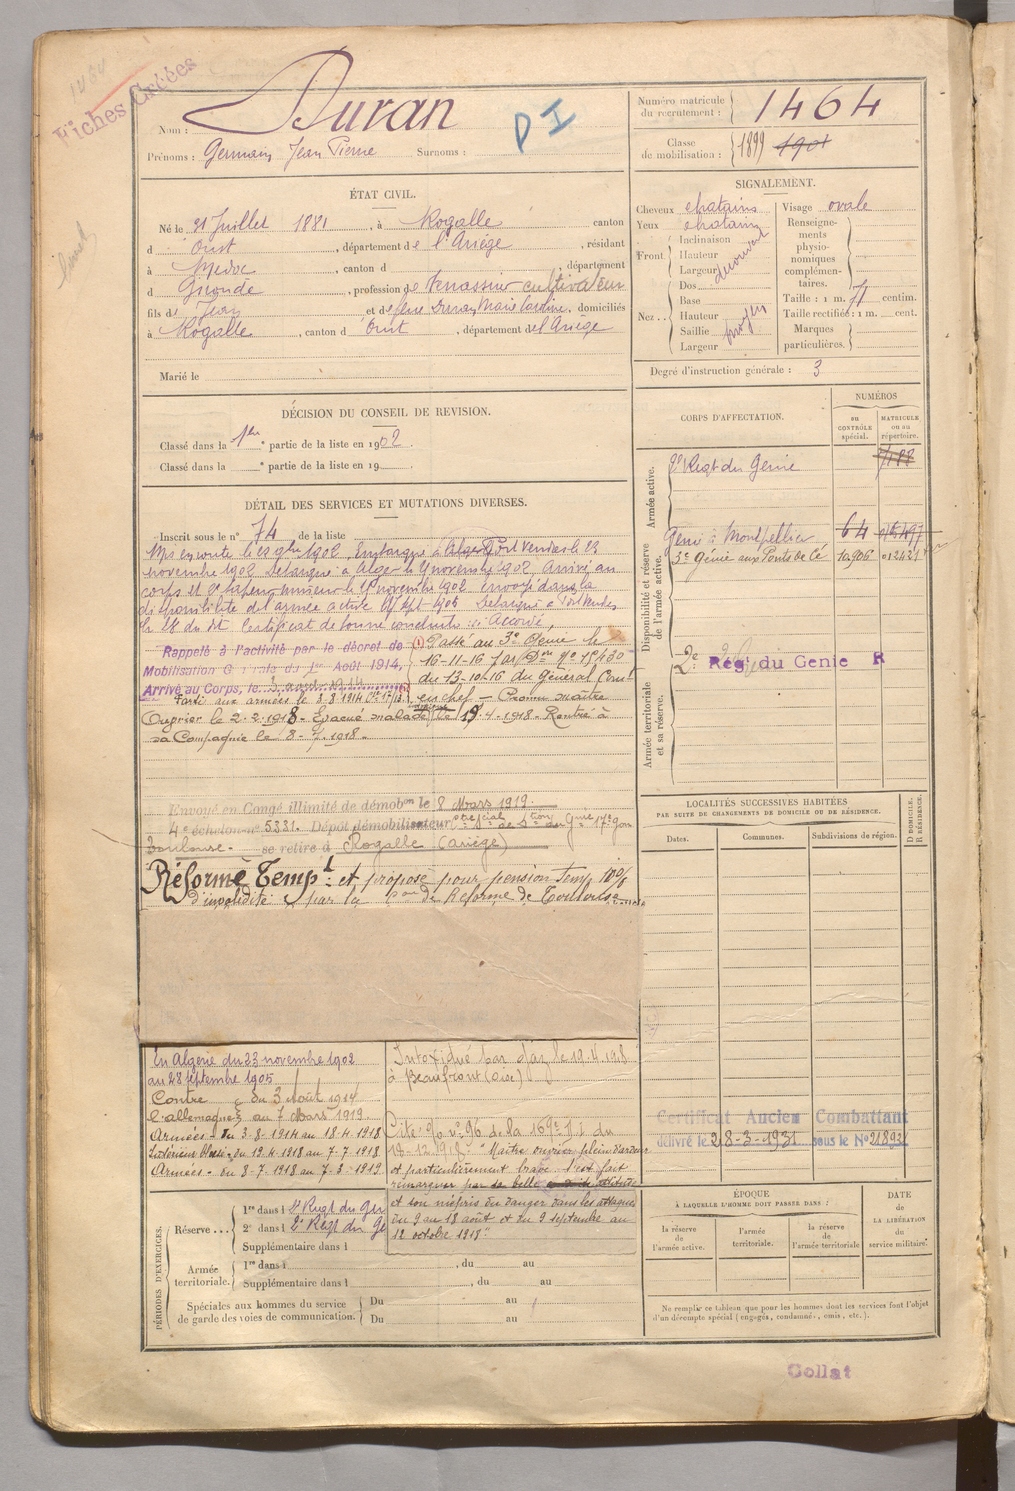 1464
Fiches Créées
Nom : Duran
P I
Prénoms : Germain Jean Pierre Surnoms :
Numéro matricule du recrutement : 1464
Classe de mobilisation : 1899 1901
ÉTAT CIVIL.
Né le 31 Juillet 1881, à Rogalle canton
d Oust, département de l'Ariège, résidant
à Medoc, canton d , département
d Gironde, profession de Terrassier cultivateur
fils de Jean et de feue Duran Marie, domiciliés
à Rogalle, canton d Oust, département de l'Ariège
Marié le
SIGNALEMENT.
Cheveux chatains
Yeux chatains
Front : Inclinaison
Hauteur
Largeur
découvert
Nez : Dos
Base
Hauteur
Saillie
Largeur
moyen
Visage ovale
Renseignements physionomiques complémentaires.
Taille : 1 m. 71 centim.
Taille rectifiée : 1 m. cent.
Marques particulières.
Degré d'instruction générale : 3
DÉCISION DU CONSEIL DE REVISION.
Classé dans la 1ère partie de la liste en 1902.
Classé dans la e partie de la liste en 19
CORPS D'AFFECTATION.
NUMÉROS
au CONTRÔLE spécial.
MATRICULE ou au répertoire.
Armée active.
2e Régt du Génie 7188
Disponibilité et réserve de l'armée active.
Génie à Montpellier 64
3e Génie aux Ponts de Cé 10906 012421
Armée territoriale et sa réserve.
2e Rég. du Genie R
DÉTAIL DES SERVICES ET MUTATIONS DIVERSES.
Inscrit sous le n° 74 de la liste
Mis en route le 22 9bre 1902. Embarqué à Alger Port Vendres le 23
novembre 1902 Débarqué à Alger le novembre 1902. Arrivé au
corps et 2e sapeur mineur le novembre 1902. Envoyé dans la
disponibilité de l'armée active le Sept 1905 Débarqué à Port Vendres
le 28 du dit Certificat de bonne conduite "Accordé"
Rappelé à l'activité par le décret de
Mobilisation Générale du 1er Août 1914,
Arrivé au Corps, le 3 août 1914
Parti aux armées le 3.8.1914 Cie 17/13
(1) Passé au 3e Génie le
16-11-16 par Don n° 15430
du 13-10-16 du Général Comt
en chef — Promu maître
Ouvrier le 2.2.1918 — Evacué malade le 19.4.1918 — Rentré à
sa Compagnie le 8-7.1918.
Envoyé en Congé illimité de démobon le 8 Mars 1919.
4e échelon n° 5331. Dépôt démobilisateur
Toulouse se retire à Rogalle (Ariège)
Réformé Tempre et proposé pour pension Temp. 10%
d'invalidité par la Con de Réforme de Toulouse
LOCALITÉS SUCCESSIVES HABITÉES
PAR SUITE DE CHANGEMENTS DE DOMICILE OU DE RÉSIDENCE.
Dates.
Communes.
Subdivisions de région.
D DOMICILE.
R RÉSIDENCE.
En Algérie du 23 novembre 1902
au 28 septembre 1905
Contre l'allemagne du 3 Août 1914
au 7 Mars 1919.
Armées - du 3-8-1914 au 18-4-1918
Intérieur Blessé - du 19.4.1918 au 7.7.1918
Armées - du 8-7-1918 au 7-3-1919.
Intoxiqué par Gaz le 19.4.1918
à Beaufront (oise)
Cité o/o n° 96 de la 169e D.I du
18-12-1918 - "Maître ouvrier plein d'ardeur
et particulièrement brave. S'est fait
remarquer par sa belle attitude
et son mépris du danger dans les attaques
du 9 au 18 août et du 9 septembre au
12 octobre 1918"
Certificat Ancien Combattant
délivré le 28-3-1931 sous le N° 21893
PÉRIODES D'EXERCICES.
Réserve
1re dans l 2e Régt du Gen
2e dans l 2e Régt du Ge
Supplémentaire dans l
Armée territoriale.
1re dans l , du au
Supplémentaire dans l , du au
Spéciales aux hommes du service de garde des voies de communication.
Du au
Du au
ÉPOQUE
À LAQUELLE L'HOMME DOIT PASSER DANS :
la réserve de l'armée active.
l'armée territoriale.
la réserve de l'armée territoriale
DATE DE LA LIBÉRATION du service militaire.
Ne remplir ce tableau que pour les hommes dont les services font l'objet
d'un décompte spécial (engagés, condamnés, omis, etc.).
Collat